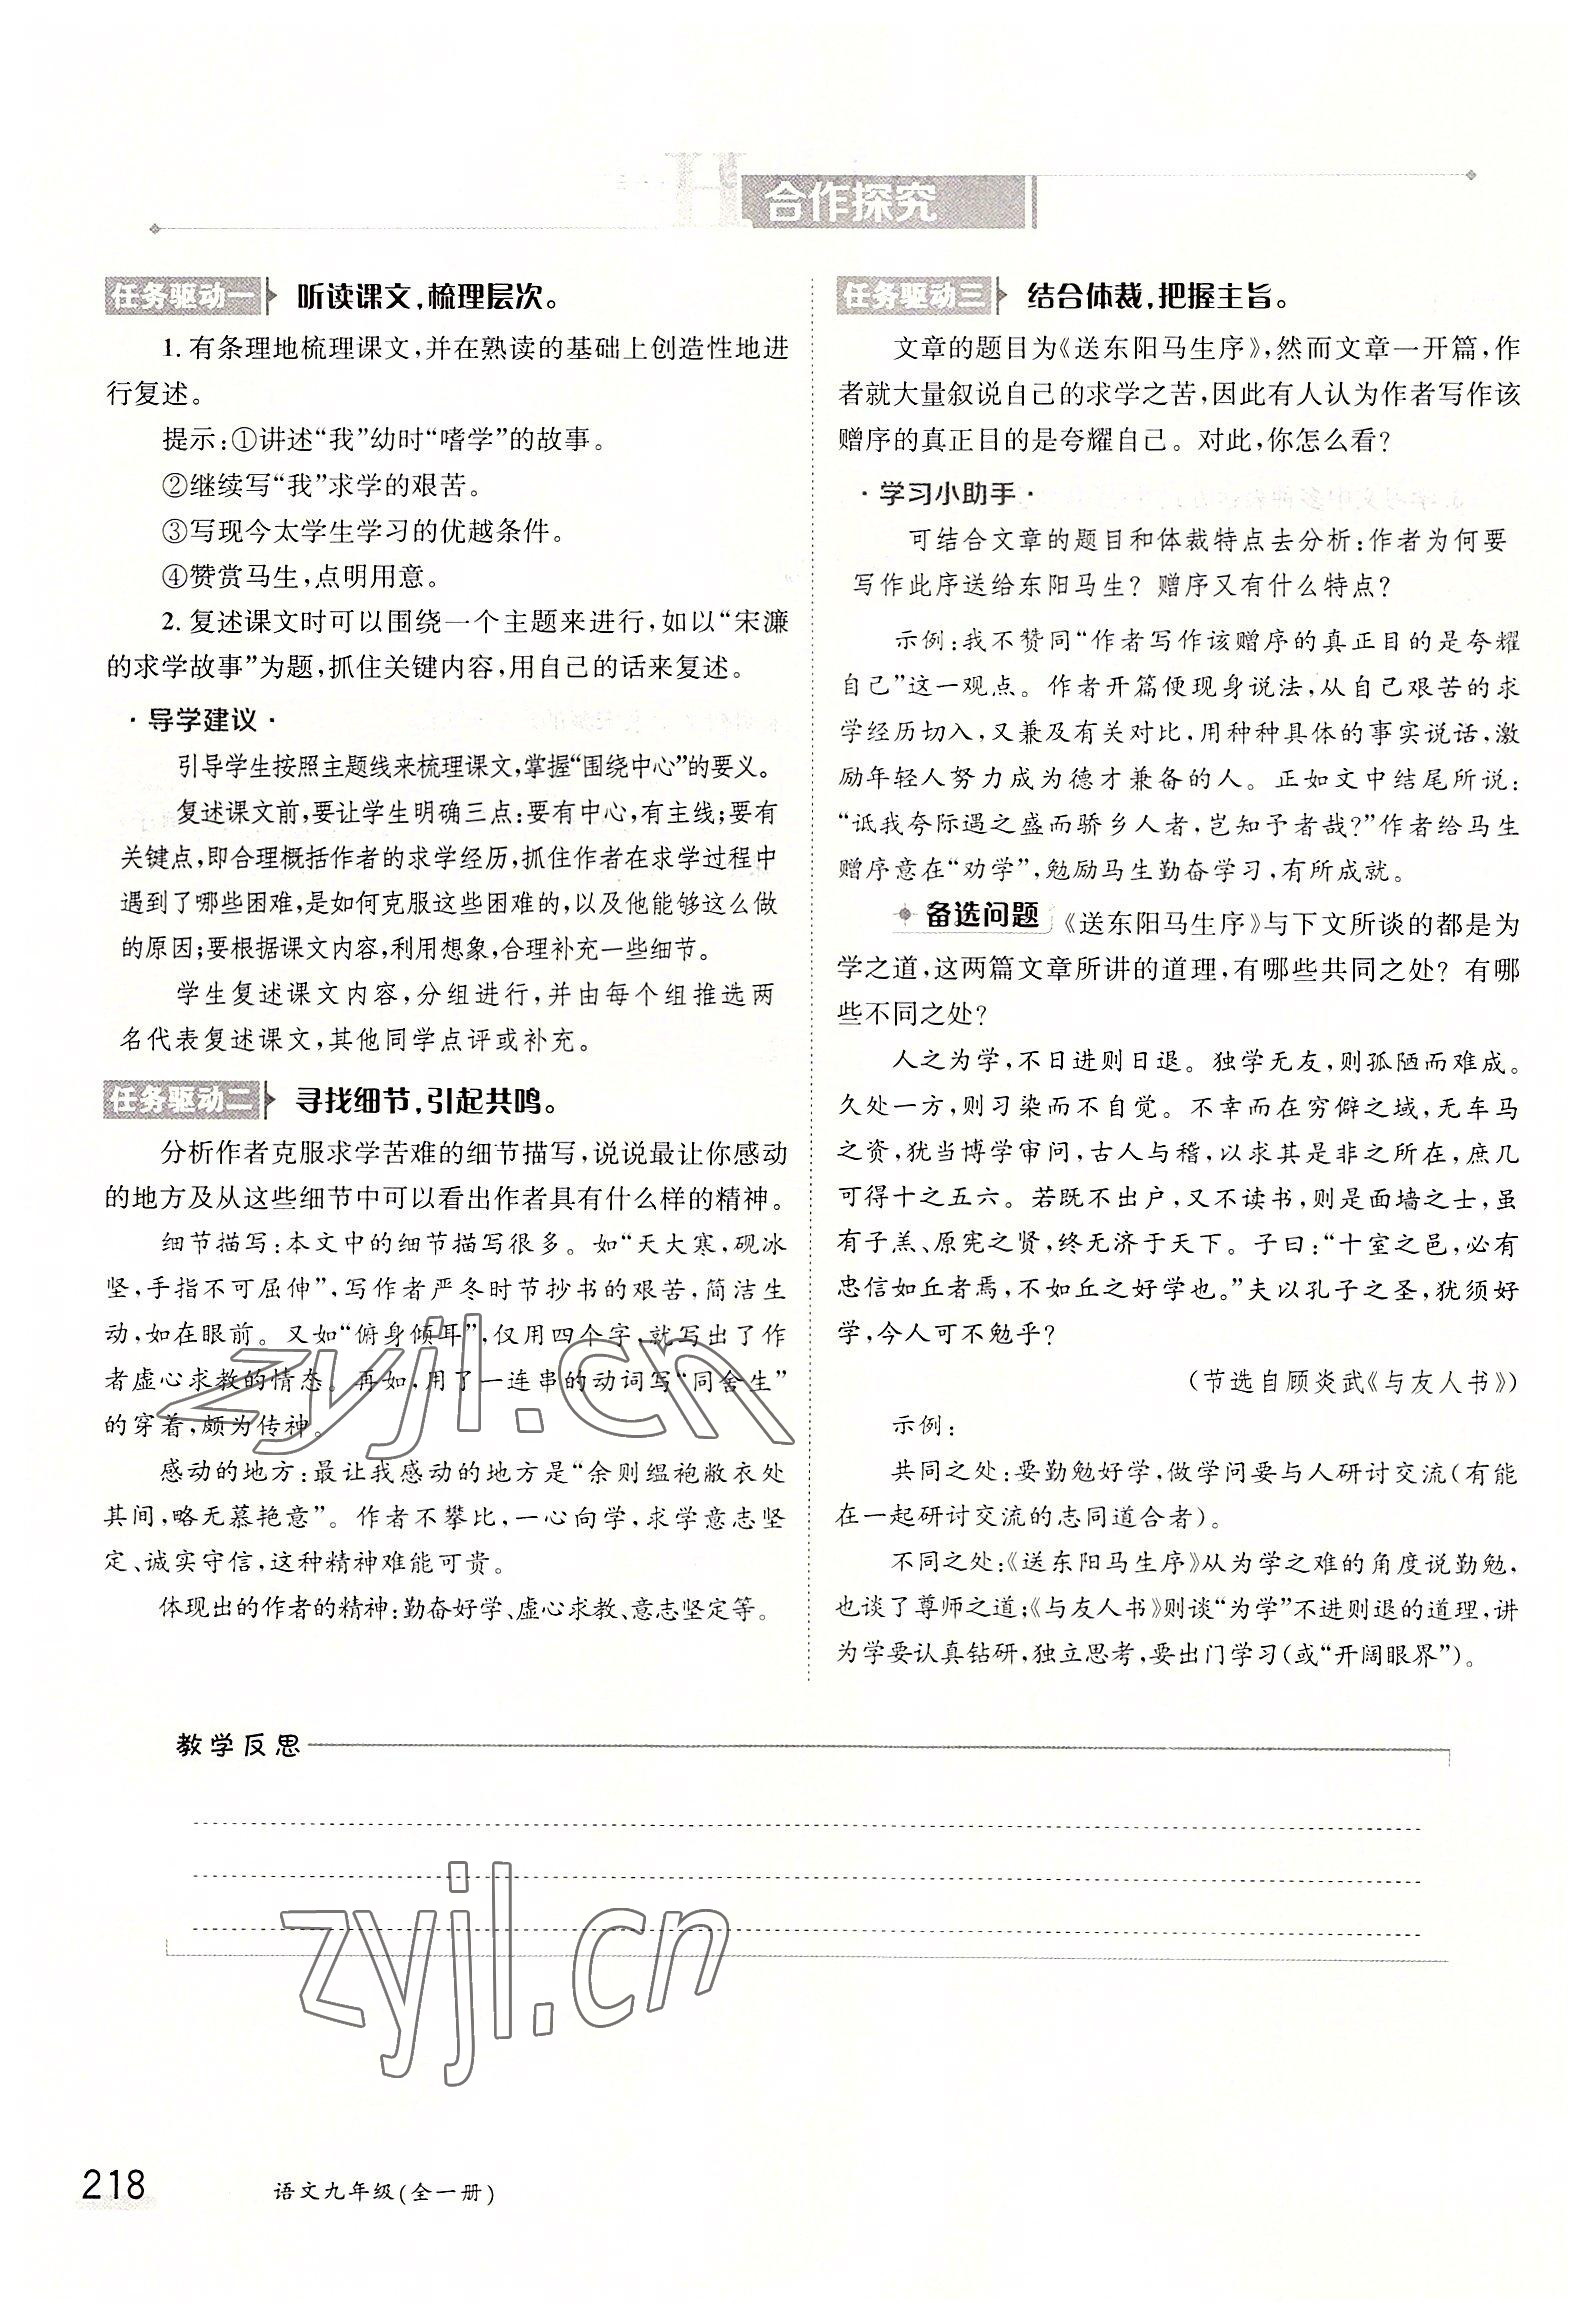 合作探究
任务驱动一 听读课文,梳理层次。
1. 有条理地梳理课文,并在熟读的基础上创造性地进
行复述。
提示:①讲述“我”幼时“嗜学”的故事。
②继续写“我”求学的艰苦。
③写现今太学生学习的优越条件。
④赞赏马生,点明用意。
2. 复述课文时可以围绕一个主题来进行,如以“宋濂
的求学故事”为题,抓住关键内容,用自己的话来复述。
·导学建议·
引导学生按照主题线来梳理课文,掌握“围绕中心”的要义。
复述课文前,要让学生明确三点:要有中心,有主线;要有
关键点,即合理概括作者的求学经历,抓住作者在求学过程中
遇到了哪些困难,是如何克服这些困难的,以及他能够这么做
的原因;要根据课文内容,利用想象,合理补充一些细节。
学生复述课文内容,分组进行,并由每个组推选两
名代表复述课文,其他同学点评或补充。
任务驱动二 寻找细节,引起共鸣。
分析作者克服求学苦难的细节描写,说说最让你感动
的地方及从这些细节中可以看出作者具有什么样的精神。
细节描写:本文中的细节描写很多。如“天大寒,砚冰
坚,手指不可屈伸”,写作者严冬时节抄书的艰苦,简洁生
动,如在眼前。又如“俯身倾耳”,仅用四个字,就写出了作
者虚心求教的情态。再如,用了一连串的动词写“同舍生”
的穿着,颇为传神。
感动的地方:最让我感动的地方是“余则缊袍敝衣处
其间,略无慕艳意”。作者不攀比,一心向学,求学意志坚
定、诚实守信,这种精神难能可贵。
体现出的作者的精神:勤奋好学、虚心求教、意志坚定等。
任务驱动三 结合体裁,把握主旨。
文章的题目为《送东阳马生序》,然而文章一开篇,作
者就大量叙说自己的求学之苦,因此有人认为作者写作该
赠序的真正目的是夸耀自己。对此,你怎么看?
·学习小助手·
可结合文章的题目和体裁特点去分析:作者为何要
写作此序送给东阳马生?赠序又有什么特点?
示例:我不赞同“作者写作该赠序的真正目的是夸耀
自己”这一观点。作者开篇便现身说法,从自己艰苦的求
学经历切入,又兼及有关对比,用种种具体的事实说话,激
励年轻人努力成为德才兼备的人。正如文中结尾所说:
“诋我夸际遇之盛而骄乡人者,岂知予者哉?”作者给马生
赠序意在“劝学”,勉励马生勤奋学习,有所成就。
备选问题 《送东阳马生序》与下文所谈的都是为
学之道,这两篇文章所讲的道理,有哪些共同之处?有哪
些不同之处?
人之为学,不日进则日退。独学无友,则孤陋而难成。
久处一方,则习染而不自觉。不幸而在穷僻之域,无车马
之资,犹当博学审问,古人与稽,以求其是非之所在,庶几
可得十之五六。若既不出户,又不读书,则是面墙之士,虽
有子羔、原宪之贤,终无济于天下。子曰:“十室之邑,必有
忠信如丘者焉,不如丘之好学也。”夫以孔子之圣,犹须好
学,今人可不勉乎?
(节选自顾炎武《与友人书》)
示例:
共同之处:要勤勉好学,做学问要与人研讨交流(有能
在一起研讨交流的志同道合者)。
不同之处:《送东阳马生序》从为学之难的角度说勤勉,
也谈了尊师之道;《与友人书》则谈“为学”不进则退的道理,讲
为学要认真钻研,独立思考,要出门学习(或“开阔眼界”)。
zyjl.cn
教学反思
zyjl.cn
218 语文九年级(全一册)